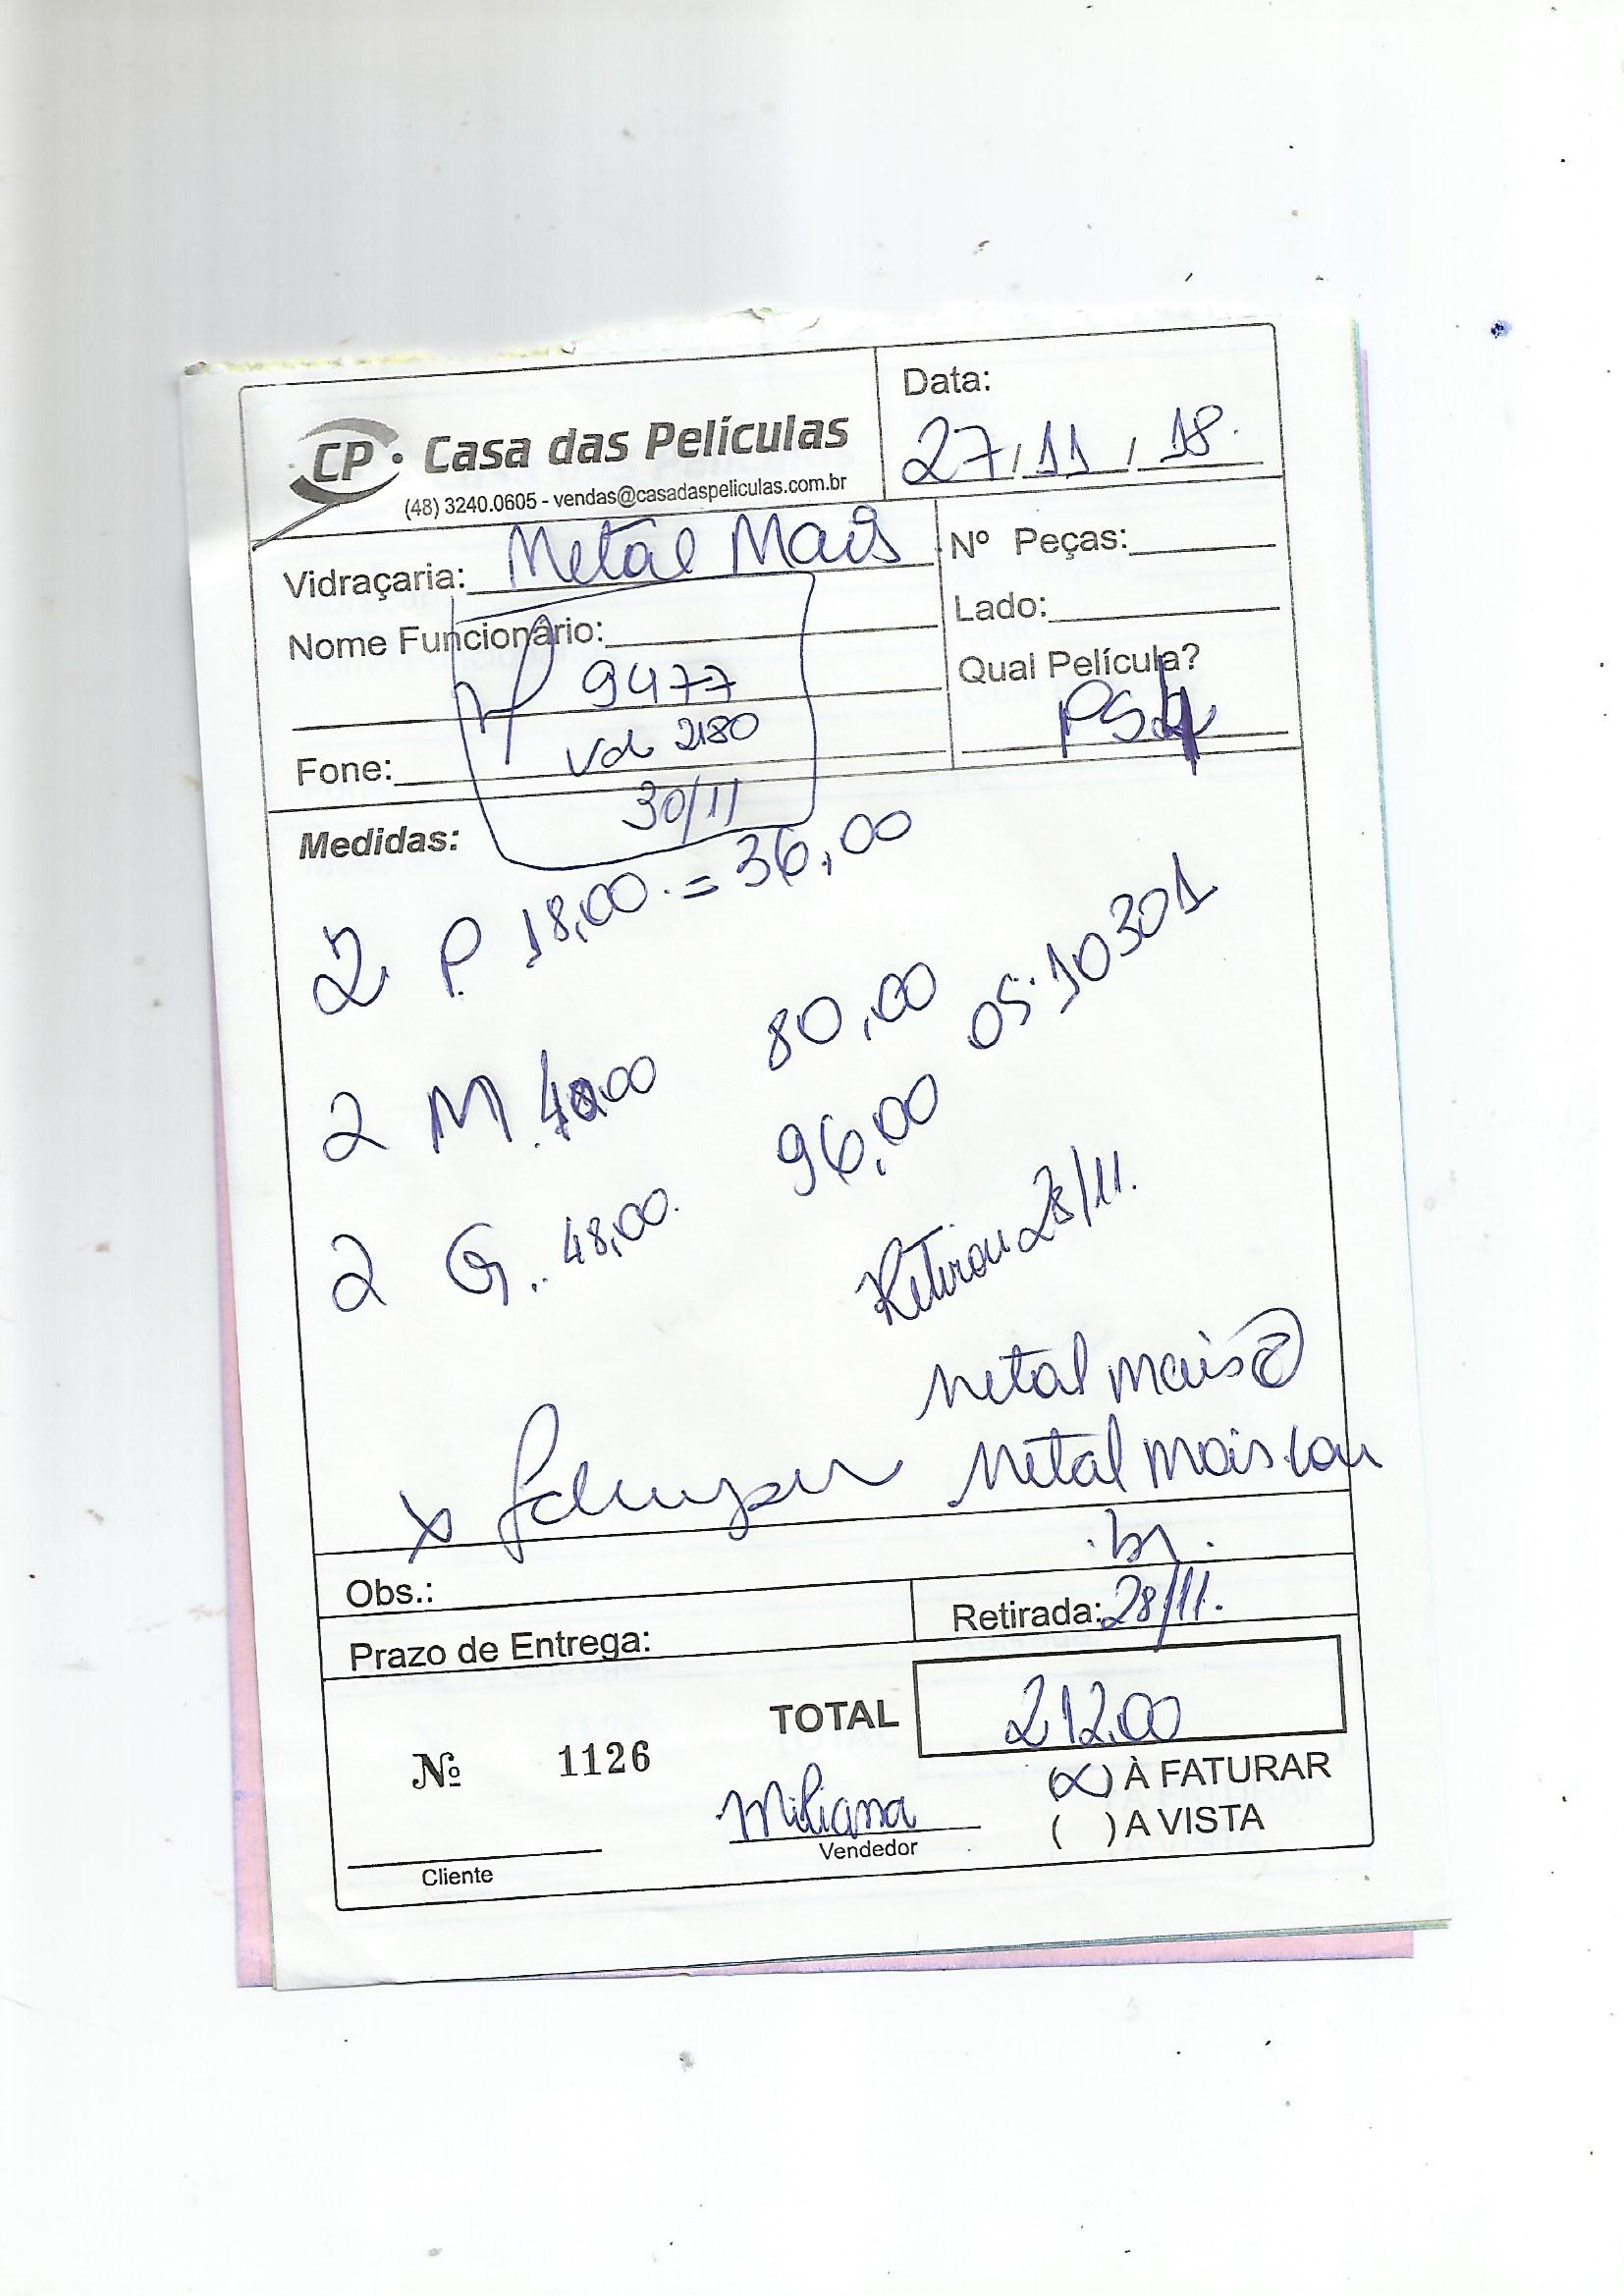 CP · Casa das Películas
(48) 3240.0605 - vendas@casadaspeliculas.com.br
Data:
27 / 11 / 18.
Vidraçaria: Metal Mais
Nº Peças:
Nome Funcionário:
Lado:
9477
Qual Película?
PS4
vd 2180
Fone:
30/11
Medidas:
2 P 18,00 = 36,00
2 M. 40,00 80,00
05.10301
2 G.. 48,00. 96,00
Retirou 28/11.
metal mais@
X
metal mais.com
.br.
Obs.:
Retirada: 28/11.
Prazo de Entrega:
TOTAL 212,00
Nº 1126
(X) À FATURAR
( ) A VISTA
Miliana
Vendedor
Cliente